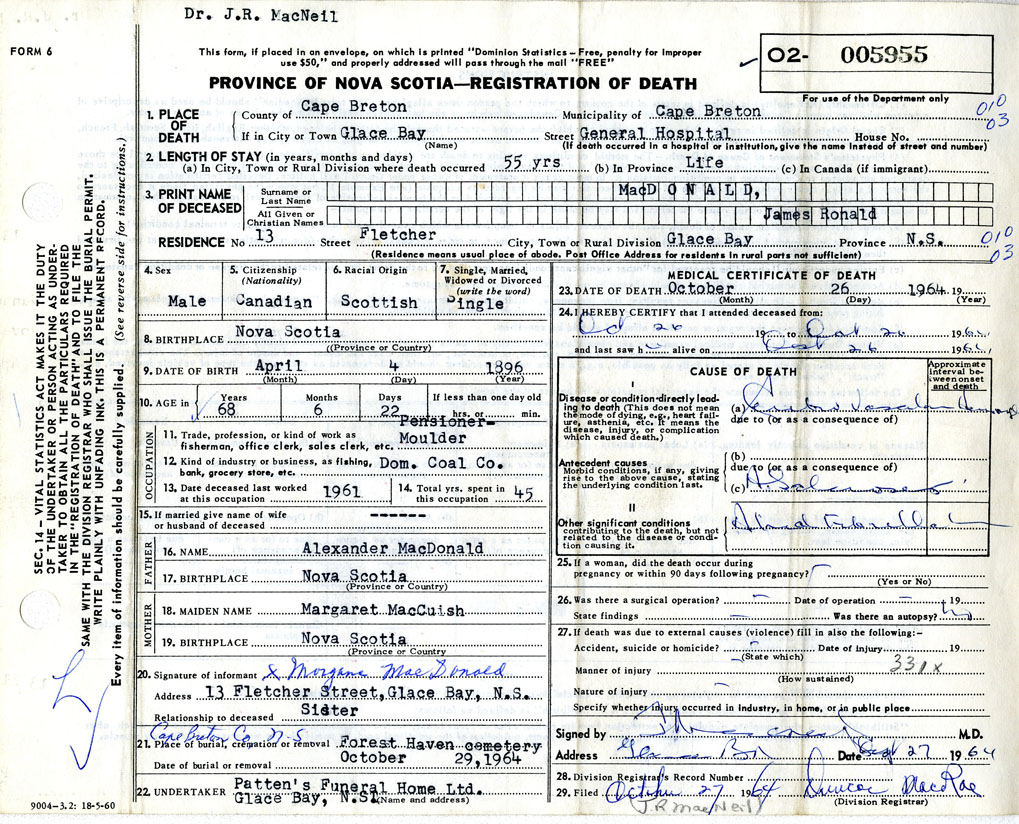 Dr. J.R. MacNeil
FORM 6
This form, if placed in an envelope, on which is printed "Dominion Statistics – Free, penalty for improper
use $50," and properly addressed will pass through the mail "FREE"
O2- 005955
For use of the Department only
PROVINCE OF NOVA SCOTIA—REGISTRATION OF DEATH
010
03
1. PLACE OF DEATH County of Cape Breton Municipality of Cape Breton
If in City or Town Glace Bay Street General Hospital House No.
(Name) (If death occurred in a hospital or institution, give the name instead of street and number)
2. LENGTH OF STAY (in years, months and days)
(a) In City, Town or Rural Division where death occurred 55 yrs (b) In Province Life (c) In Canada (if immigrant)
3. PRINT NAME OF DECEASED Surname or Last Name MacDONALD,
All Given or Christian Names James Ronald
RESIDENCE No 13 Street Fletcher City, Town or Rural Division Glace Bay Province N.S.
010
03
(Residence means usual place of abode. Post Office Address for residents in rural parts not sufficient)
4. Sex Male
5. Citizenship (Nationality) Canadian
6. Racial Origin Scottish
7. Single, Married, Widowed or Divorced (write the word) Single
8. BIRTHPLACE Nova Scotia
((Province or Country)
9. DATE OF BIRTH April 4 1896
(Month) (Day) (Year)
10. AGE in Years 68 Months 6 Days 22 If less than one day old hrs. or min.
OCCUPATION
11. Trade, profession, or kind of work as fisherman, office clerk, sales clerk, etc. Pensioner-Moulder
12. Kind of industry or business, as fishing, bank, grocery store, etc. Dom. Coal Co.
13. Date deceased last worked at this occupation 1961
14. Total yrs. spent in this occupation 45
15. If married give name of wife or husband of deceased ------
FATHER
16. NAME Alexander MacDonald
17. BIRTHPLACE Nova Scotia
(Province or Country)
MOTHER
18. MAIDEN NAME Margaret MacCuish
19. BIRTHPLACE Nova Scotia
(Province or Country)
20. Signature of informant MacDonald
Address 13 Fletcher Street, Glace Bay, N.S.
Relationship to deceased Sister
Cape Breton Co N-S
21. Place of burial, cremation or removal Forest Haven cemetery
Date of burial or removal October 29, 1964
22. UNDERTAKER Patten's Funeral Home Ltd.
Glace Bay, N.S. (Name and address)
MEDICAL CERTIFICATE OF DEATH
23. DATE OF DEATH October 26 1964 19
(Month) (Day) (Year)
24. I HEREBY CERTIFY that I attended deceased from:
Oct 26 19 to Oct 26 1964
and last saw h alive on Oct 26 1964
CAUSE OF DEATH
Approximate interval between onset and death
I
Disease or condition directly leading to death (This does not mean the mode of dying, e.g., heart failure, asthenia, etc. It means the disease, injury, or complication which caused death.)
(a)
due to (or as a consequence of)
Antecedent causes
Morbid conditions, if any, giving rise to the above cause, stating the underlying condition last.
(b)
due to (or as a consequence of)
(c)
II
Other significant conditions contributing to the death, but not related to the disease or condition causing it.
25. If a woman, did the death occur during
pregnancy or within 90 days following pregnancy?
(Yes or No)
26. Was there a surgical operation? Date of operation 19
State findings Was there an autopsy? No
27. If death was due to external causes (violence) fill in also the following:–
Accident, suicide or homicide? Date of injury 19
(State which)
Manner of injury 331x
(How sustained)
Nature of injury
Specify whether injury occurred in industry, in home, or in public place
Signed by M.D.
Address Glace Bay Date 27 1964
28. Division Registrar's Record Number
29. Filed October 27 1964 Duncan MacRae
J.R. MacNeil (Division Registrar)
SEC. 14 – VITAL STATISTICS ACT MAKES IT THE DUTY
OF THE UNDERTAKER OR PERSON ACTING AS UNDER-
TAKER TO OBTAIN ALL THE PARTICULARS REQUIRED
IN THE "REGISTRATION OF DEATH" AND TO FILE THE
SAME WITH THE DIVISION REGISTRAR WHO SHALL ISSUE THE BURIAL PERMIT.
WRITE PLAINLY WITH UNFADING INK. THIS IS A PERMANENT RECORD.
Every item of information should be carefully supplied. (See reverse side for instructions.)
9004-3.2: 18-5-60